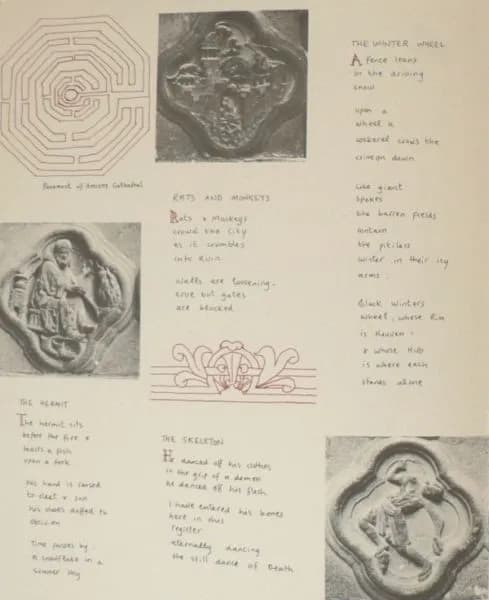 Pavement of Amiens Cathedral
RATS AND MONKEYS
Rats & Monkeys
crowd the city
as it crumbles
into ruin
walls are loosening -
but gates
are blocked
THE HERMIT
The hermit sits
before the fire &
toasts a fish
upon a fork
his hand is raised
to sleet & sun
his shoes doffed to
oblivion
Time passes by
a snowflake in a
summer sky
THE SKELETON
He danced off his clothes
in the grip of a demon
he danced off his flesh
I have entered his bones
here in this
register
eternally dancing
the still dance of Death
THE WINTER WHEEL
A fence leans
in the driving
snow
upon a
wheel a
crows the
crimson dawn
Like giant
spokes
the barren fields
contain
the pitiless
winter in their icy
arms.
Black winters
wheel, whose Rim
is Heaven -
& whose Hub
is where each
stands alone